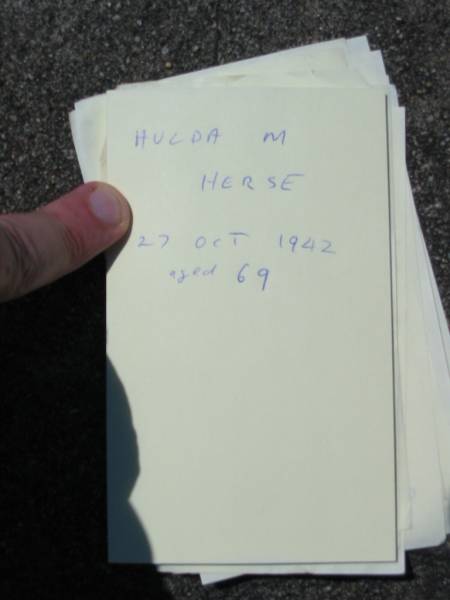 HULDA M
HERSE
27 OCT 1942
aged 69